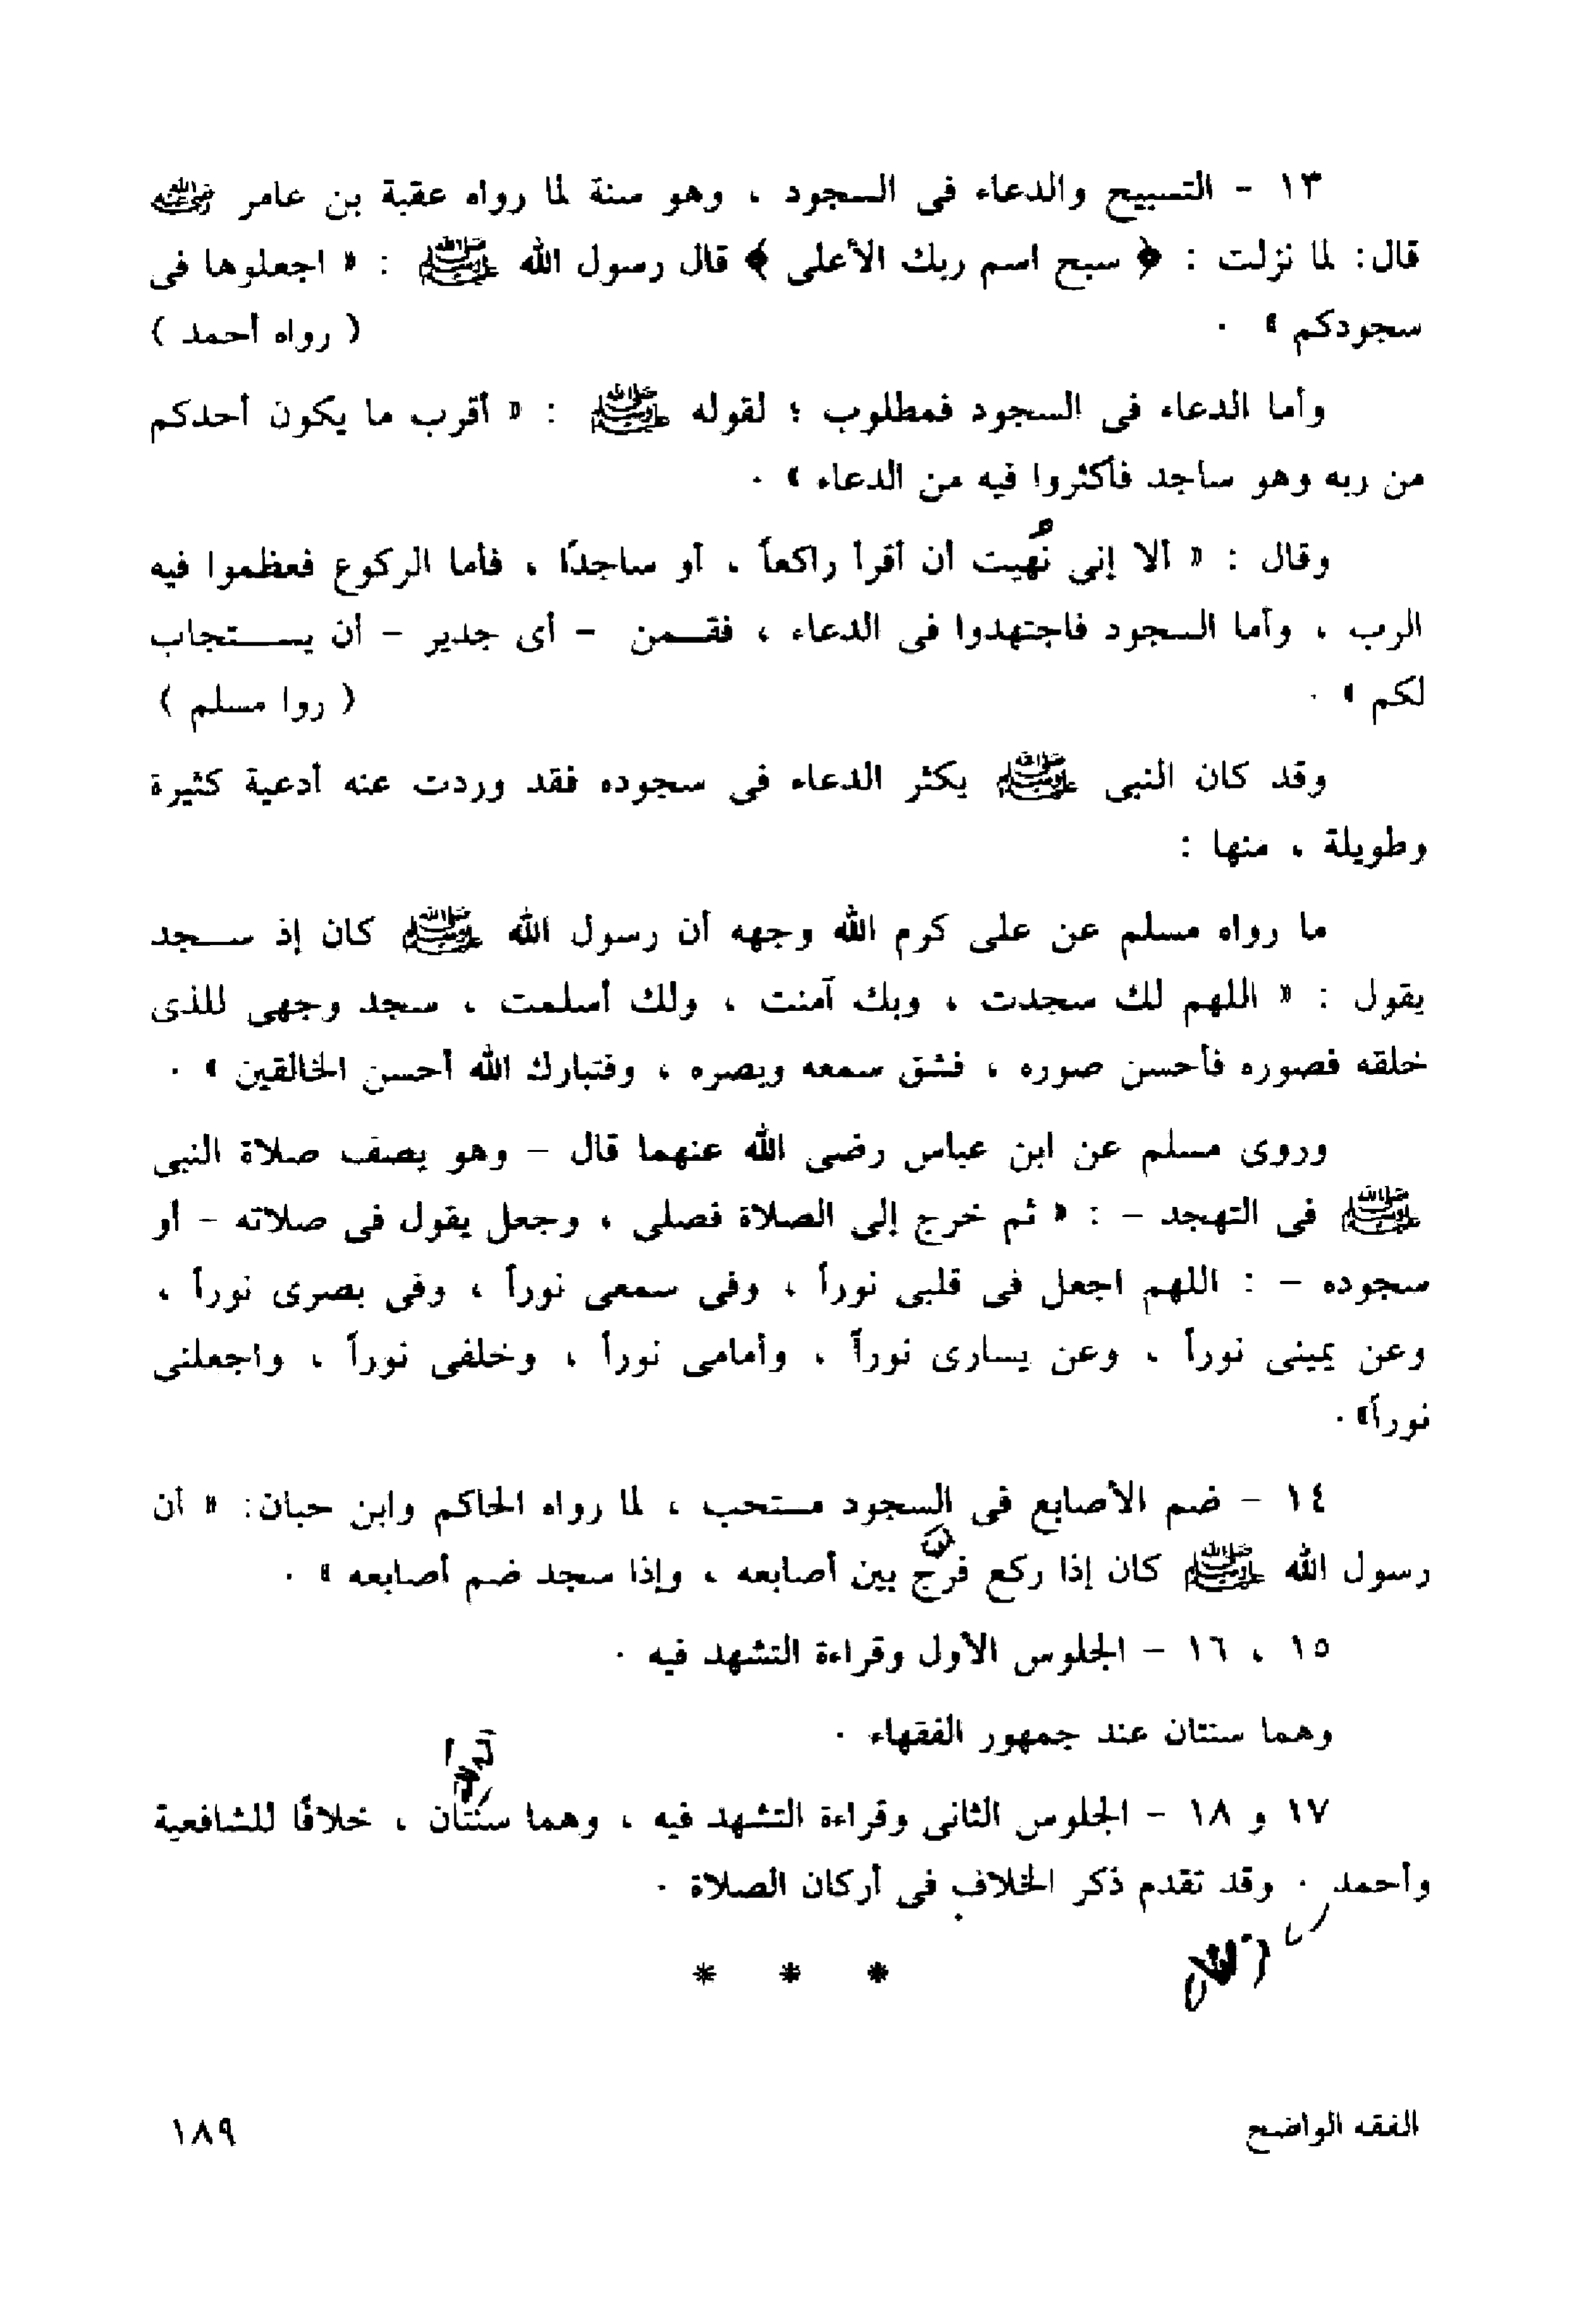 ١٣ - التسبيح والدعاء فى السجود ، وهو سنة لما رواه عقبة بن عامر رضي الله عنه
قال: لما نزلت : ﴿ سبح اسم ربك الأعلى ﴾ قال رسول الله ﷺ : « اجعلوها فى
سجودكم » . ( رواه أحمد )
وأما الدعاء فى السجود فمطلوب ؛ لقوله ﷺ : « أقرب ما يكون أحدكم
من ربه وهو ساجد فأكثروا فيه من الدعاء » .
وقال : « ألا إنى نُهيت أن أقرأ راكعاً ، أو ساجدًا ، فأما الركوع فعظموا فيه
الرب ، وأما السجود فاجتهدوا فى الدعاء ، فقمن - أى جدير - أن يستجاب
لكم » . ( روا مسلم )
وقد كان النبى ﷺ يكثر الدعاء فى سجوده فقد وردت عنه أدعية كثيرة
وطويلة ، منها :
ما رواه مسلم عن على كرم الله وجهه أن رسول الله ﷺ كان إذ سجد
يقول : « اللهم لك سجدت ، وبك آمنت ، ولك أسلمت ، سجد وجهى للذى
خلقه فصوره فأحسن صوره ، فشق سمعه وبصره ، وفتبارك الله أحسن الخالقين » .
وروى مسلم عن ابن عباس رضى الله عنهما قال - وهو يصف صلاة النبى
ﷺ فى التهجد - : « ثم خرج إلى الصلاة فصلى ، وجعل يقول فى صلاته - أو
سجوده - : اللهم اجعل فى قلبى نوراً ، وفى سمعى نوراً ، وفى بصرى نوراً ،
وعن يمينى نوراً ، وعن يسارى نوراً ، وأمامى نوراً ، وخلفى نوراً ، واجعلنى
نوراً» .
١٤ - ضم الأصابع فى السجود مستحب ، لما رواه الحاكم وابن حبان: « أن
رسول الله ﷺ كان إذا ركع فرج بين أصابعه ، وإذا سجد ضم أصابعه » .
١٥ ، ١٦ - الجلوس الأول وقراءة التشهد فيه .
وهما سنتان عند جمهور الفقهاء .
١٧ و ١٨ - الجلوس الثانى وقراءة التشهد فيه ، وهما سنتان ، خلافًا للشافعية
وأحمد . وقد تقدم ذكر الخلاف فى أركان الصلاة .
* * *
الفقه الواضح ١٨٩